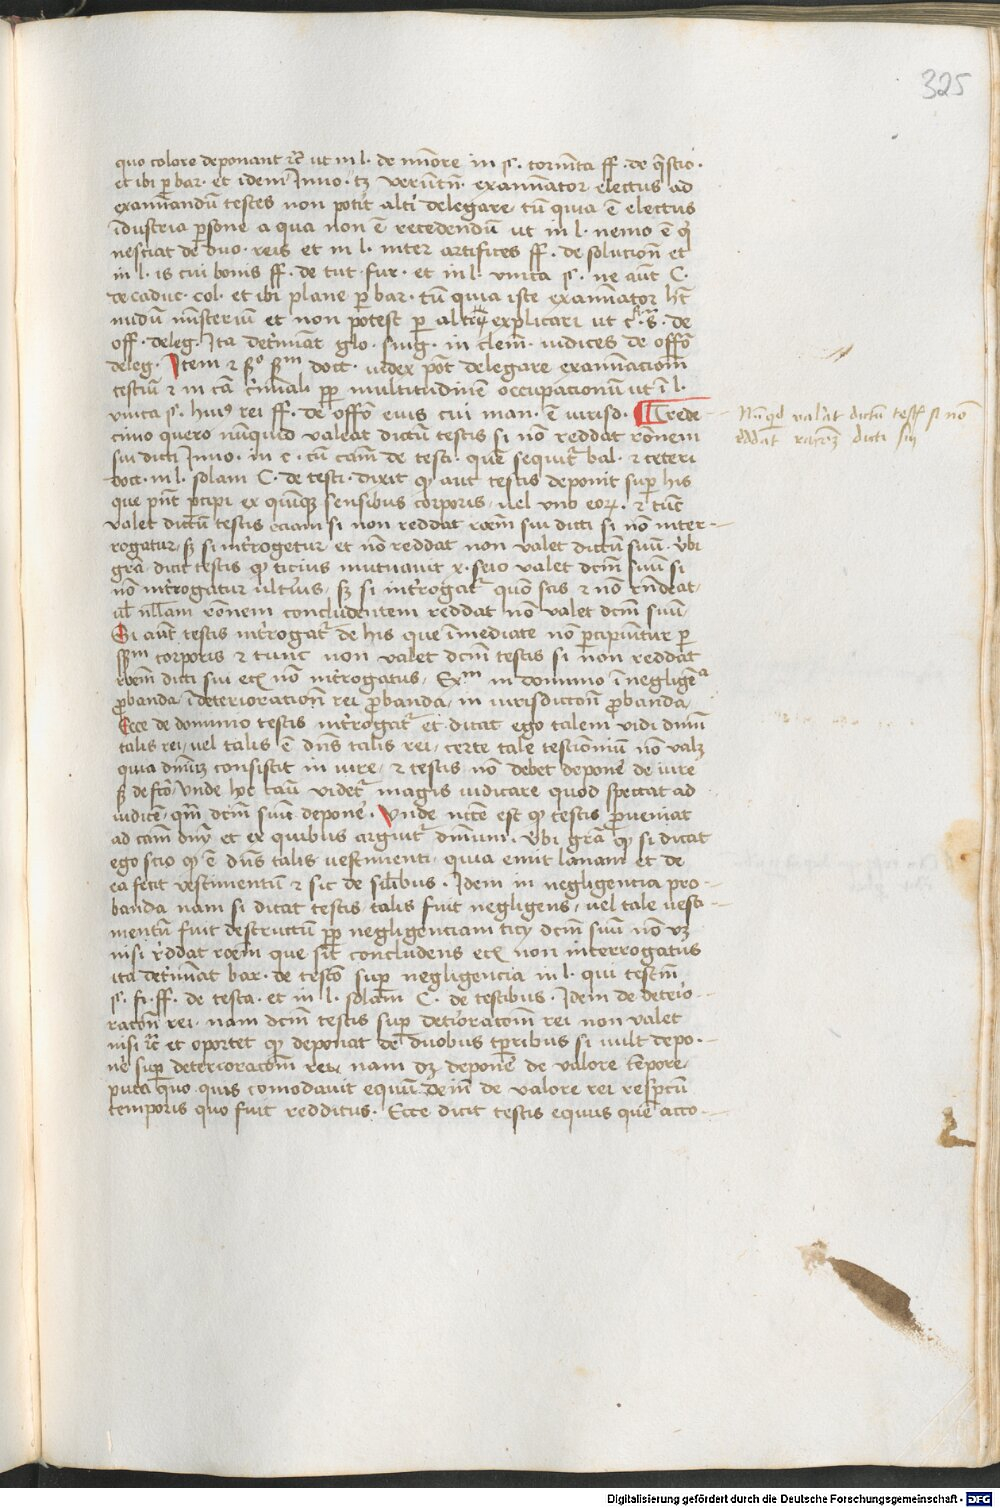 325
quo colore deponant rc̄ ut in l. de mīore in §. tormēta ff. de q̄stio.
et ibi ꝑ bar. et idem Inno. tn̄ verūtn̄. examīator electus ad
examīandū testes non potit alti delegare, tū quia ē electus
īdustria ꝑsone a qua non ē recedendū ut in l. nemo ē qͥ
nesciat de duo. reis et in l. inter artifices ff. de solucion̄ et
in l. is cui bonis ff. de tut. fur. et in l. vnica §. ne aūt C.
de caduc. col. et ibi plane ꝑ bar. tū quia iste examīator ht̄
nudū mīsteriū et non potest ꝑ altrū explicari ut c. fi. de
off. deleg. Ita det̄mīat glo. sing. in clem̄. iudices de offō
deleg. Item et sōm doct. iudex pōt delegare examīacionē
testiū et in cā crīmāli ꝓp multitudinē occupacionū ut ī l.
vnica §. huiꝰ rei ff. de offō eius cui man. ē iurisd. Trede
cimo quero nūquid valeat dictū testis si nō reddat rōnem
sui dicti Inno. in c. cū cām de testi. quē sequit᷑ bal. et ceteri
doct. in l. solam C. de testi. dixit ꝙ aut testis deponit suꝑ his
que pn̄t ꝑcipi ex quīqꝫ sensibus corporis, uel vno eoꝝ. et tūc
valet dictū testis eciam si non reddat roēm sui dicti si nō inter-
rogatur, sꝫ si int̄rogetur et nō reddat non valet dictū suū. v̄bi
grā. dicit testis ꝙ ticius mutuauit x. seio valet dcm̄ suū si
nō int̄rogatur ulteriꝰ, sꝫ si int̄rogat᷑ quō scis et nō rn̄deat,
ul̄ nll̄am rōnem concludentem reddat nō valet dcm̄ suū,
Si aūt testis int̄rogat᷑ de his que īmediate nō ꝑcipiuntur ꝑ
corporis et tunc non valet dcm̄ testis si non reddat
roēm dicti sui nō int̄rogatus, Exm in dominio ī negligēᵃ
ꝓbanda, ī deterioration̄ rei ꝓbanda, in iurisdiction̄ ꝓbanda,
Ecce de dominio testis int̄rogat᷑ et dicat ego talem vidi dn̄m
talis rei, uel talis ē dn̄s talis rei, certe tale testimoniū nō valꝫ
quia dn̄iū consistit in iure, et testis nō debet depone᷑ de iure
sꝫ de fcō, vnde hoc cāu videt᷑ magis iudicare quod spectat ad
iudicē, qm̄ dcm̄ suū depone᷑. Vnde ncc̄e est ꝙ testis ꝑueniat
ad cām dn̄ij et ex quibus arguit᷑ dn̄ium. v̄bi grā ꝙ si dicat
ego scio ꝙ ē dn̄s talis uestimenti, quia emit lanam et de
ea fecit vestimentū et sic de sil̄ibus. Idem in negligencia pro-
banda nam si dicat testis talis fuit negligens, uel tale uesti-
mentū fuit destructū ꝓp negligenciam ticij dcm̄ suū nō vꝫ
nisi r̄ddat roēm que sit concludens non interrogatus
ita det̄mīat bar. de testō suꝑ negligencia in l. qui testm̄
§. fi. ff. de testa. et in l. solam C. de testibus. Idem de deterio-
racōn̄ rei. nam dcm̄ testis suꝑ det̄ioracōm̄ rei non valet
nisi rc̄ et oportet ꝙ deponat de duobus tꝑribus si uult depo-
ne᷑ suꝑ deterioracōm̄ rei, nam dꝫ depone᷑ de valore tꝑore,
puta quo quis comodauit equū dein̄ de valore rei respc̄tū
temporis quo fuit redditus. Ecce dicit testis equus quē acco-
Nūqͥd val̄at dictū test̄ si nō
r̄ddat rac̄oēꝫ dicti sui
Digitalisierung gefördert durch die Deutsche Forschungsgemeinschaft - DFG